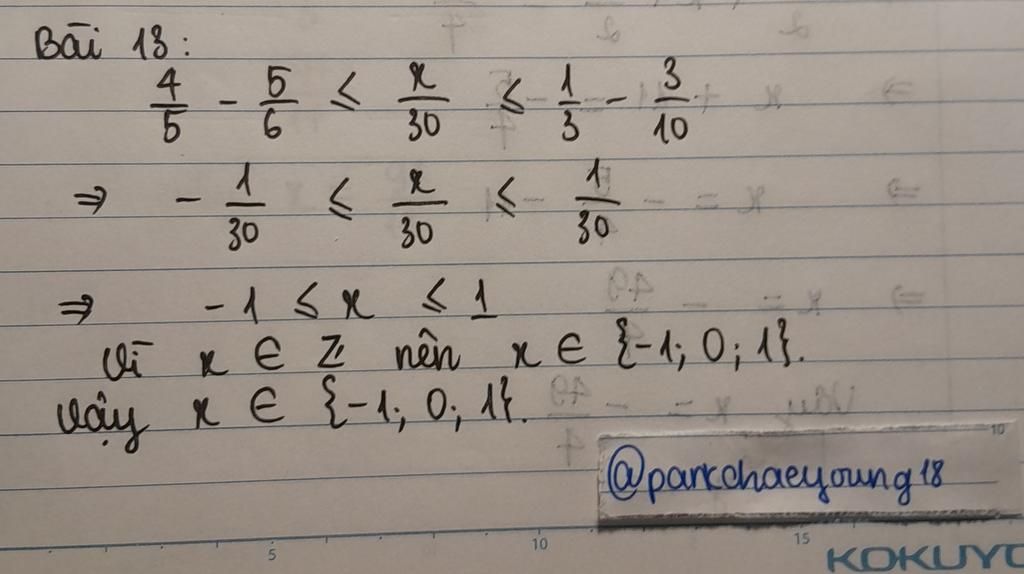 Bài 13:
4/5 - 5/6 ≤ x/30 ≤ 1/3 - 3/10
⇒ - 1/30 ≤ x/30 ≤ 1/30
⇒ -1 ≤ x ≤ 1
Vì x ∈ Z nên x ∈ {-1; 0; 1}.
Vậy x ∈ {-1; 0; 1}.
@parkchaeyoung18
5 10 15
10
KOKUYO